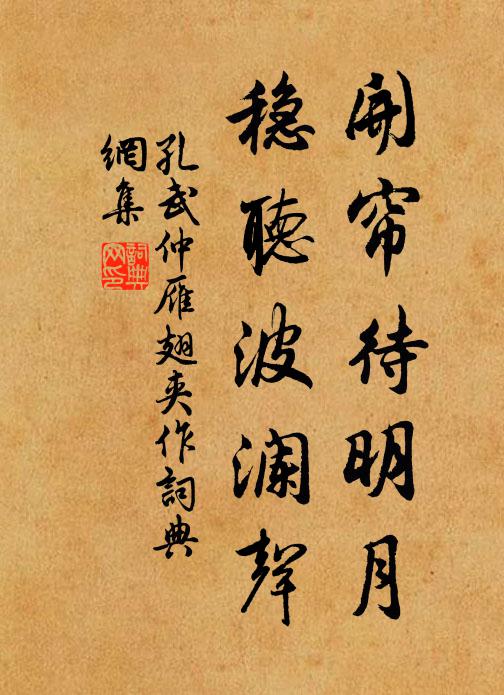 開帘待明月
穩聽波瀾聲
孔武仲雁翅夾作詞典
網集
詞典
网印